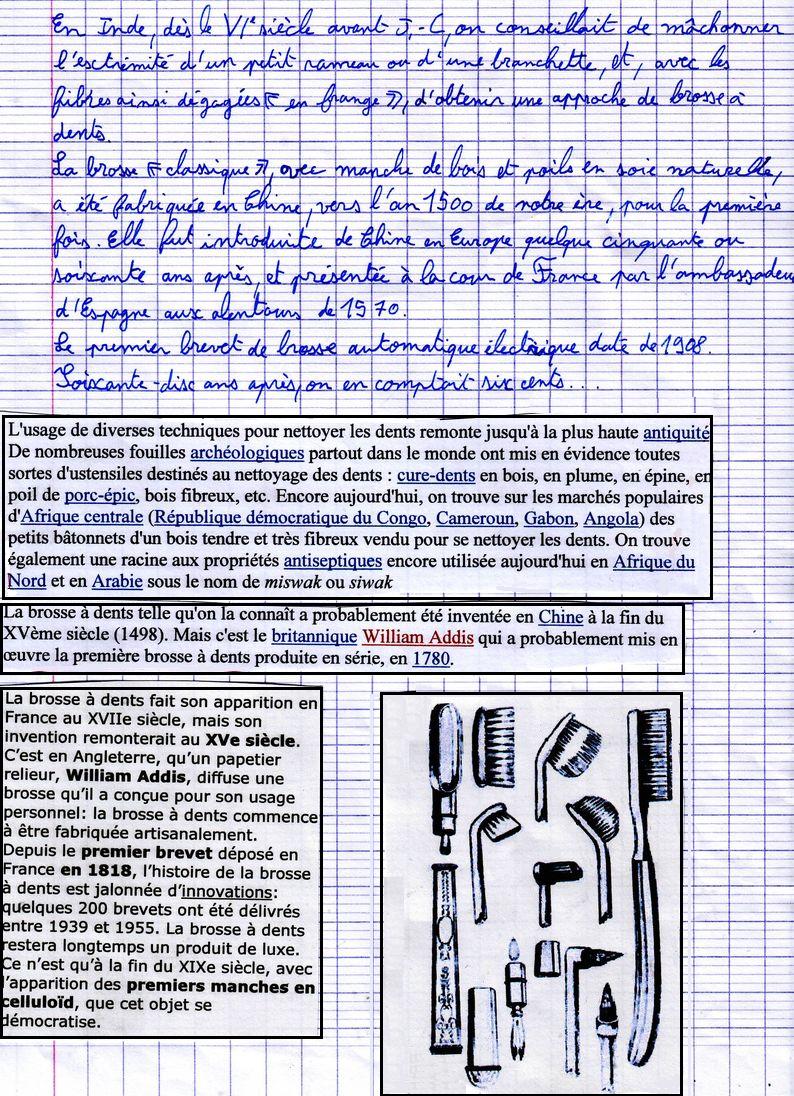 En Inde, dès le VIe siècle avant J.-C, on conseillait de mâchonner
l'extrémité d'un petit rameau ou d'une branchette, et, avec les
fibres ainsi dégagées « en frange », d'obtenir une approche de brosse à
dents.
La brosse « classique », avec manche de bois et poils en soie naturelle,
a été fabriquée en Chine, vers l'an 1500 de notre ère, pour la première
fois. Elle fut introduite de Chine en Europe quelque cinquante ou
soixante ans après, et présentée à la cour de France par l'ambassadeur
d'Espagne aux alentours de 1570.
Le premier brevet de brosse automatique électrique date de 1908.
Soixante-disc ans après, on en comptait six cents...
L'usage de diverses techniques pour nettoyer les dents remonte jusqu'à la plus haute antiquité
De nombreuses fouilles archéologiques partout dans le monde ont mis en évidence toutes
sortes d'ustensiles destinés au nettoyage des dents : cure-dents en bois, en plume, en épine, en
poil de porc-épic, bois fibreux, etc. Encore aujourd'hui, on trouve sur les marchés populaires
d'Afrique centrale (République démocratique du Congo, Cameroun, Gabon, Angola) des
petits bâtonnets d'un bois tendre et très fibreux vendu pour se nettoyer les dents. On trouve
également une racine aux propriétés antiseptiques encore utilisée aujourd'hui en Afrique du
Nord et en Arabie sous le nom de miswak ou siwak
La brosse à dents telle qu'on la connaît a probablement été inventée en Chine à la fin du
XVème siècle (1498). Mais c'est le britannique William Addis qui a probablement mis en
œuvre la première brosse à dents produite en série, en 1780.
La brosse à dents fait son apparition en
France au XVIIe siècle, mais son
invention remonterait au XVe siècle.
C'est en Angleterre, qu'un papetier
relieur, William Addis, diffuse une
brosse qu'il a conçue pour son usage
personnel: la brosse à dents commence
à être fabriquée artisanalement.
Depuis le premier brevet déposé en
France en 1818, l'histoire de la brosse
à dents est jalonnée d'innovations:
quelques 200 brevets ont été délivrés
entre 1939 et 1955. La brosse à dents
restera longtemps un produit de luxe.
Ce n'est qu'à la fin du XIXe siècle, avec
l'apparition des premiers manches en
celluloïd, que cet objet se
démocratise.